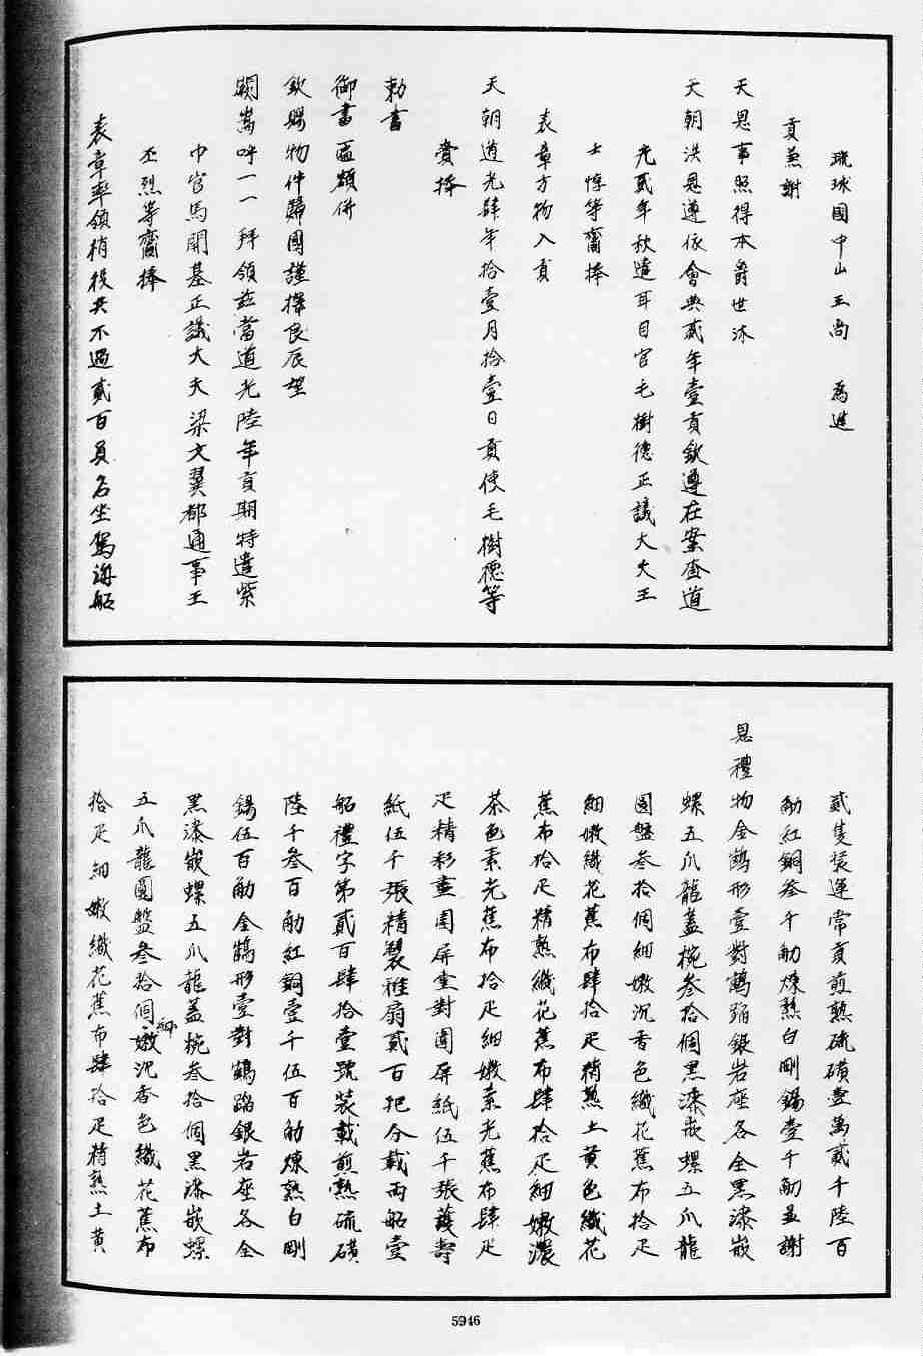 琉球國中山王尚　為進
貢並謝
天恩事照得本爵世沐
天朝洪恩遵依會典貳年壹貢欽遵在案查道
光貳年秋遣耳目官毛樹德正議大夫王
士惇等齎捧
表章方物入貢
天朝道光肆年拾壹月拾壹日貢使毛樹德等
賫捧
勅書
御書匾額併
欽賜物件歸國謹擇良辰望
闕嵩呼一一拜領茲當道光陸年貢期特遣紫
巾官馬開基正議大夫梁文翼都通事王
丕烈等齎捧
表章率領梢役共不過貳百員名坐駕海船
貳隻裝運常貢煎熟硫磺壹萬貳千陸百
觔紅銅叁千觔煉熟白剛錫壹千觔並謝
恩禮物金鶴形壹對鶴踏銀岩座各全黑漆嵌
螺五爪龍蓋椀叁拾個黑漆嵌螺五爪龍
圓盤叁拾個細嫩沉香色織花蕉布拾疋
細嫩織花蕉布肆拾疋精熟土黃色織花
蕉布拾疋精熟織花蕉布肆拾疋細嫩濃
茶色素光蕉布拾疋細嫩素光蕉布肆疋
疋精彩畫圍屏壹對圍屏紙伍千張護壽
紙伍千張精製雅扇貳百把分載兩船壹
船禮字第貳百肆拾壹號裝載煎熟硫磺
陸千叁百觔紅銅壹千伍百觔煉熟白剛
錫伍百觔金鶴形壹對鶴踏銀岩座各全
黑漆嵌螺五爪龍蓋椀叁拾個黑漆嵌螺
五爪龍圓盤叁拾個細嫩沉香色織花蕉布
拾疋細嫩織花蕉布肆拾疋精熟土黃
5946